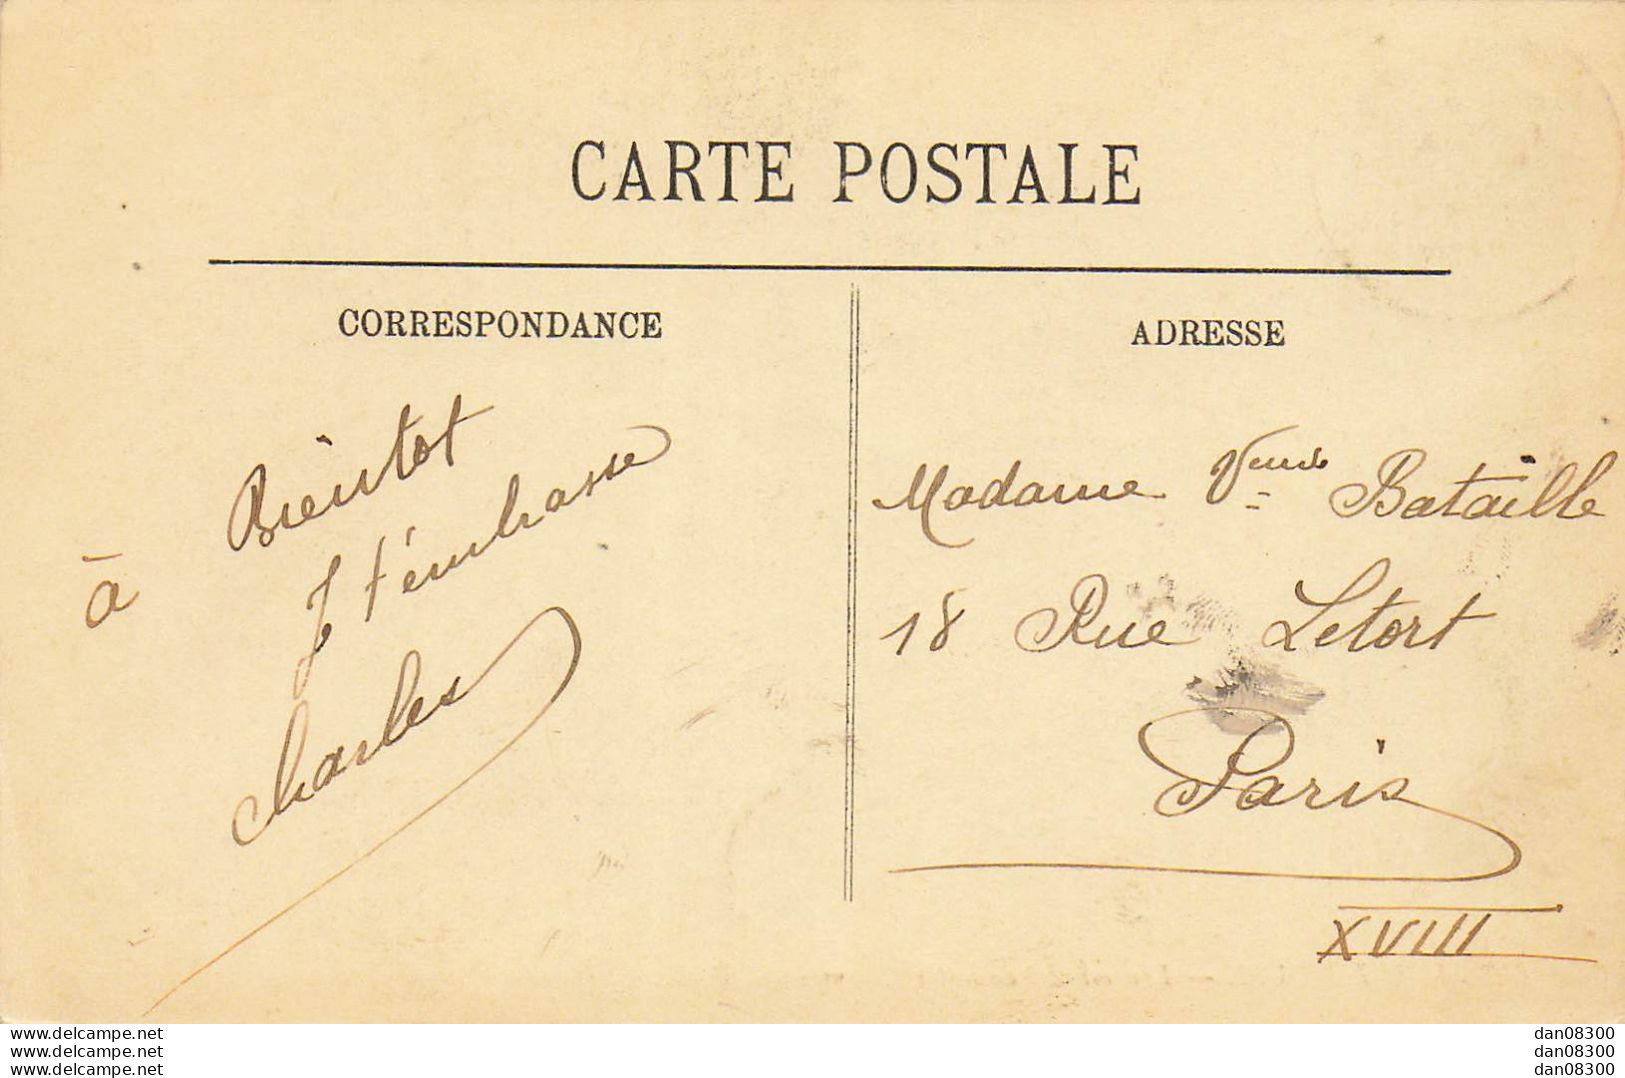 CARTE POSTALE
CORRESPONDANCE
à Bientot
Je t'embrasse
Charles
ADRESSE
Madame Veuve Bataille
18 Rue Letort
Paris
XVIII
www.delcampe.net
www.delcampe.net
www.delcampe.net
dan08300
dan08300
dan08300